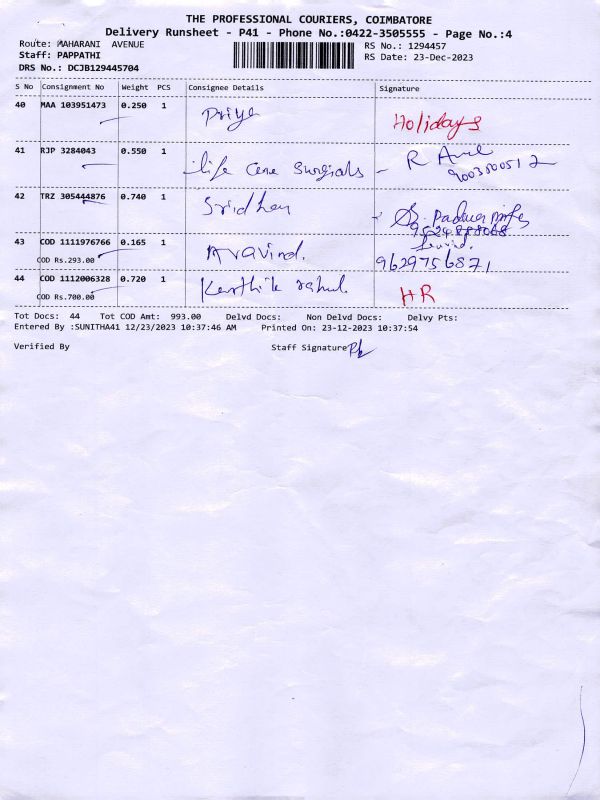 THE PROFESSIONAL COURIERS, COIMBATORE
Delivery Runsheet - P41 - Phone No.:0422-3505555 - Page No.:4
Route: MAHARANI AVENUE
RS No.: 1294457
Staff: PAPPATHI
RS Date: 23-Dec-2023
DRS No.: DCJB129445704
S No Consignment No Weight PCS Consignee Details Signature
40 MAA 103951473 0.250 1 Priya Holidays
41 RJP 3284043 0.550 1 life Care Surgicals - R
9003500512
42 TRZ 305444876 0.740 1 Sridhar
43 COD 1111976766 0.165 1 Aravind.
COD Rs.293.00 9629756871
44 COD 1112006328 0.720 1 Karthik rahul. HR
COD Rs.700.00
Tot Docs: 44 Tot COD Amt: 993.00 Delvd Docs: Non Delvd Docs: Delvy Pts:
Entered By :SUNITHA41 12/23/2023 10:37:46 AM Printed On: 23-12-2023 10:37:54
Verified By Staff Signature